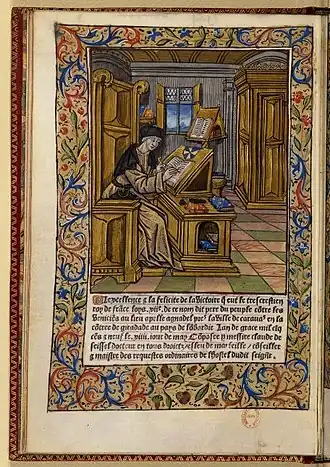 Lexcellence & la felicite de la victoire q eut le tres crestien
roy de fráce loys. xii.e de ce nom dit pere du peuple cótre les
Veniciés au lieu appelle agnadel pres la ville de caravas en la
cótree de giradade au pays de lóbardie lan de grace mil cinq
cés & neuf le .xiiii. iour de may Cópose p messire claude de
seissel docteur en tous droitz esleu de marseille cóseillier
& maistre des requestes ordinaires de lhostel dudit seigñr.